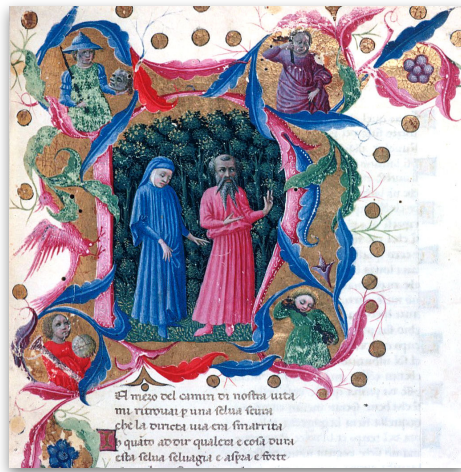 El mezo del camin di nostra uita
mi ritrouai p una selua scura
che la diricta uia era smarrita
quāto a dir qualera e cosa dura
esta selua seluagia e aspra e forte